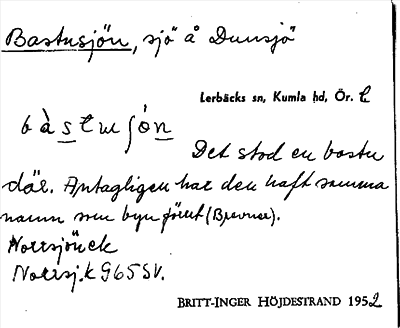 Bastusjön, sjö å Dunsjö
Lerbäcks sn, Kumla hd, Ör. L
bàstusjón
Det stod en bastu
där. Antagligen har den haft samma
namn som byn förut (Brevner).
Norrsjö
Norrsj.k 965 SV.
BRITT-INGER HÖJDESTRAND 1952